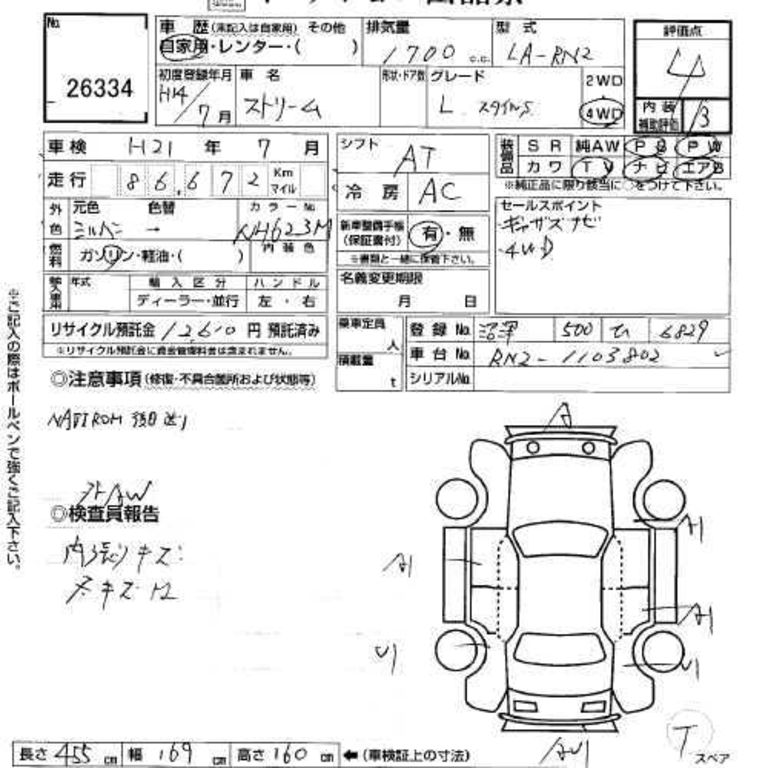 No. 26334
車歴 (未記入は自家用) その他
自家用・レンター・( )
排気量 1700 c.c.
型式 LA-RN2
評価点 4
初度登録年月 H14/7月
車名 ストリーム
形状・ドア数
グレード L
2WD
4WD
内装補助評価 B
車検 H21年 7月
シフト AT
装備品 SR 純AW PS PW
カワ TV ナビ エアB
※純正品に限り該当に○をつけて下さい。
走行 86,672 Km マイル
冷房 AC
外色 元色 色替 カラーNo.
シルバー → NH623M
内装色
燃料 ガソリン・軽油・( )
新車整備手帳(保証書付) 有・無
※書類と一緒に保管下さい。
セールスポイント
・ギャザズナビ
・4WD
輸入車用 年式 輸入区分 ハンドル
ディーラー・並行 左・右
名義変更期限
月 日
リサイクル預託金 12610円 預託済み
※リサイクル預託金に資金管理料金は含まれません。
乗車定員 人
積載量 t
登録No. 沼津 500 ひ 6829
車台No. RN2-1103802
シリアルNo.
◎注意事項(修復・不具合箇所および状態等)
NAVI ROM 後日送り
外AW
◎検査員報告
内張りキズ
※ご記入の際はボールペンで強くご記入下さい。
A
A1
A1
A1
U1
U1
AU1
T スペア
長さ 455cm 幅 169cm 高さ 160cm ←(車検証上の寸法)